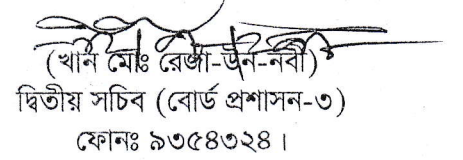 (খান মোঃ রেজা-উন-নবী)
দ্বিতীয় সচিব (বোর্ড প্রশাসন-৩)
ফোনঃ ৯৩৫৪৩২৪।